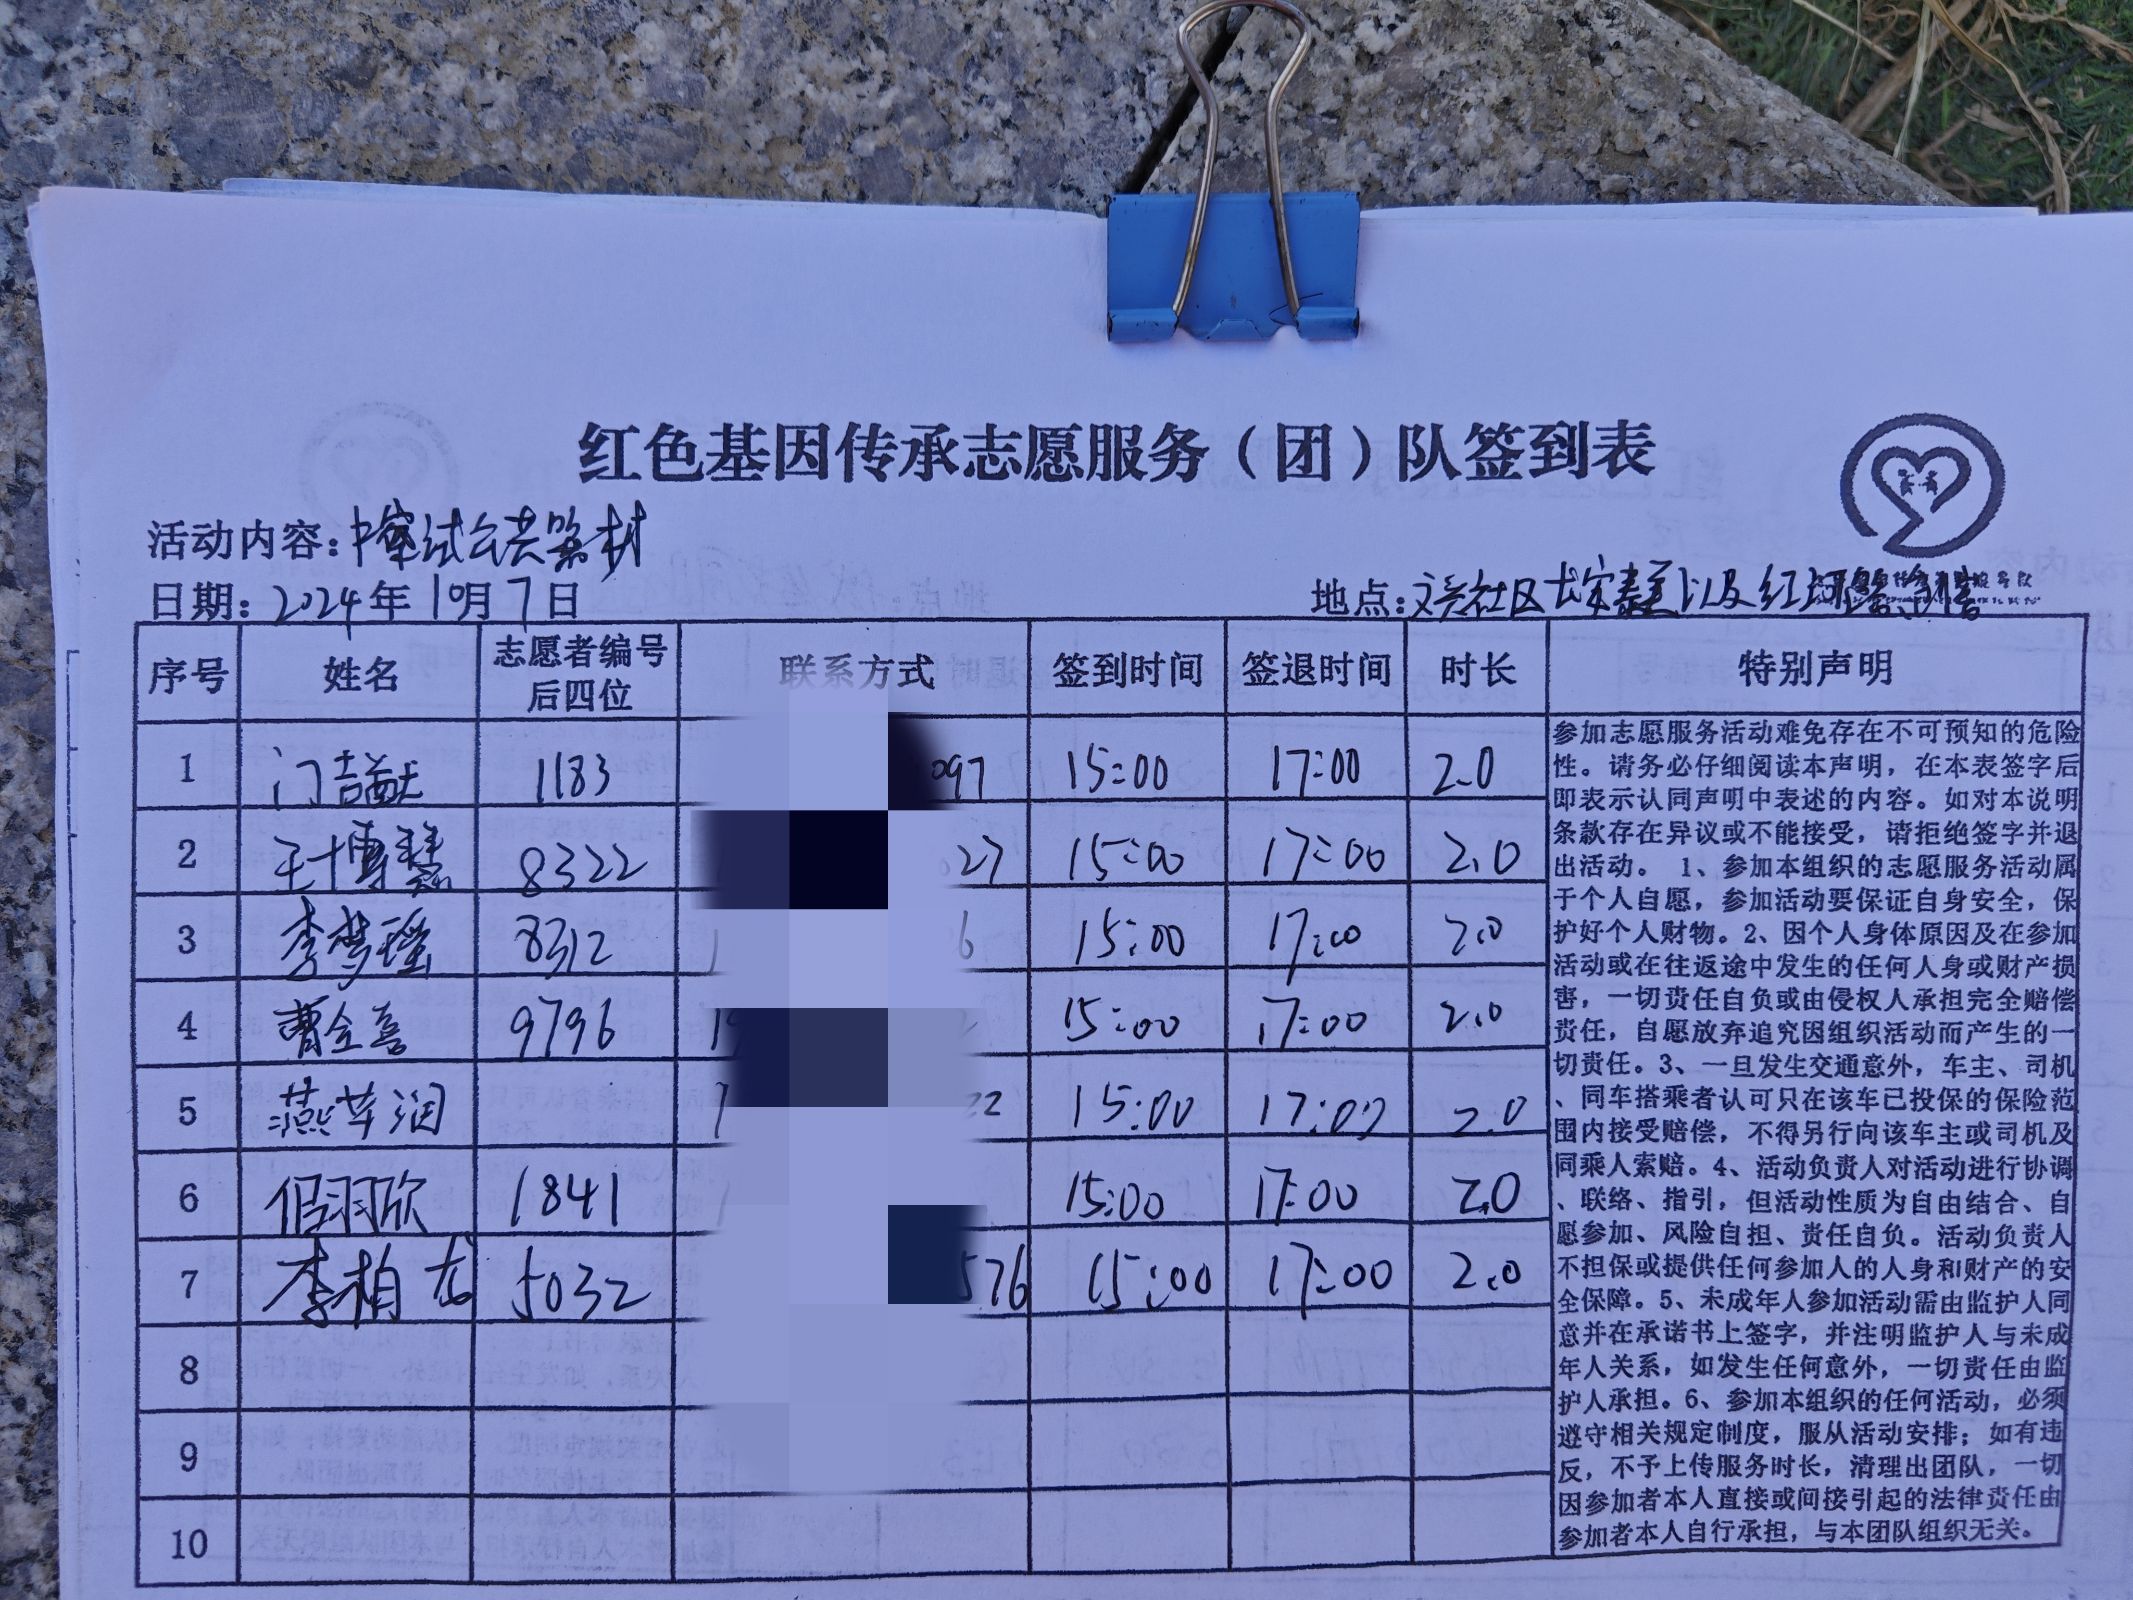 红色基因传承志愿服务（团）队签到表
活动内容：擦试公共器材
日期：2024年10月7日
地点：社区 以及红河
序号 姓名 志愿者编号后四位 联系方式 签到时间 签退时间 时长 特别声明
1 门喆猷 1183 097 15:00 17:00 2.0
2 王博慧 8322 27 15:00 17:00 2.0
3 李梦瑶 8312 6 15:00 17:00 2.0
4 曹全喜 9796 15:00 17:00 2.0
5 燕苹润 22 15:00 17:00 2.0
6 羽欣 1841 15:00 17:00 2.0
7 李柏龙 5032 576 15:00 17:00 2.0
8
9
10
参加志愿服务活动难免存在不可预知的危险
性。请务必仔细阅读本声明，在本表签字后
即表示认同声明中表述的内容。如对本说明
条款存在异议或不能接受，请拒绝签字并退
出活动。 1、参加本组织的志愿服务活动属
于个人自愿，参加活动要保证自身安全，保
护好个人财物。2、因个人身体原因及在参加
活动或在往返途中发生的任何人身或财产损
害，一切责任自负或由侵权人承担完全赔偿
责任，自愿放弃追究因组织活动而产生的一
切责任。3、一旦发生交通意外，车主、司机
、同车搭乘者认可只在该车已投保的保险范
围内接受赔偿，不得另行向该车主或司机及
同乘人索赔。4、活动负责人对活动进行协调
、联络、指引，但活动性质为自由结合、自
愿参加、风险自担、责任自负。活动负责人
不担保或提供任何参加人的人身和财产的安
全保障。5、未成年人参加活动需由监护人同
意并在承诺书上签字，并注明监护人与未成
年人关系，如发生任何意外，一切责任由监
护人承担。6、参加本组织的任何活动，必须
遵守相关规定制度，服从活动安排；如有违
反，不予上传服务时长，清理出团队，一切
因参加者本人直接或间接引起的法律责任由
参加者本人自行承担，与本团队组织无关。